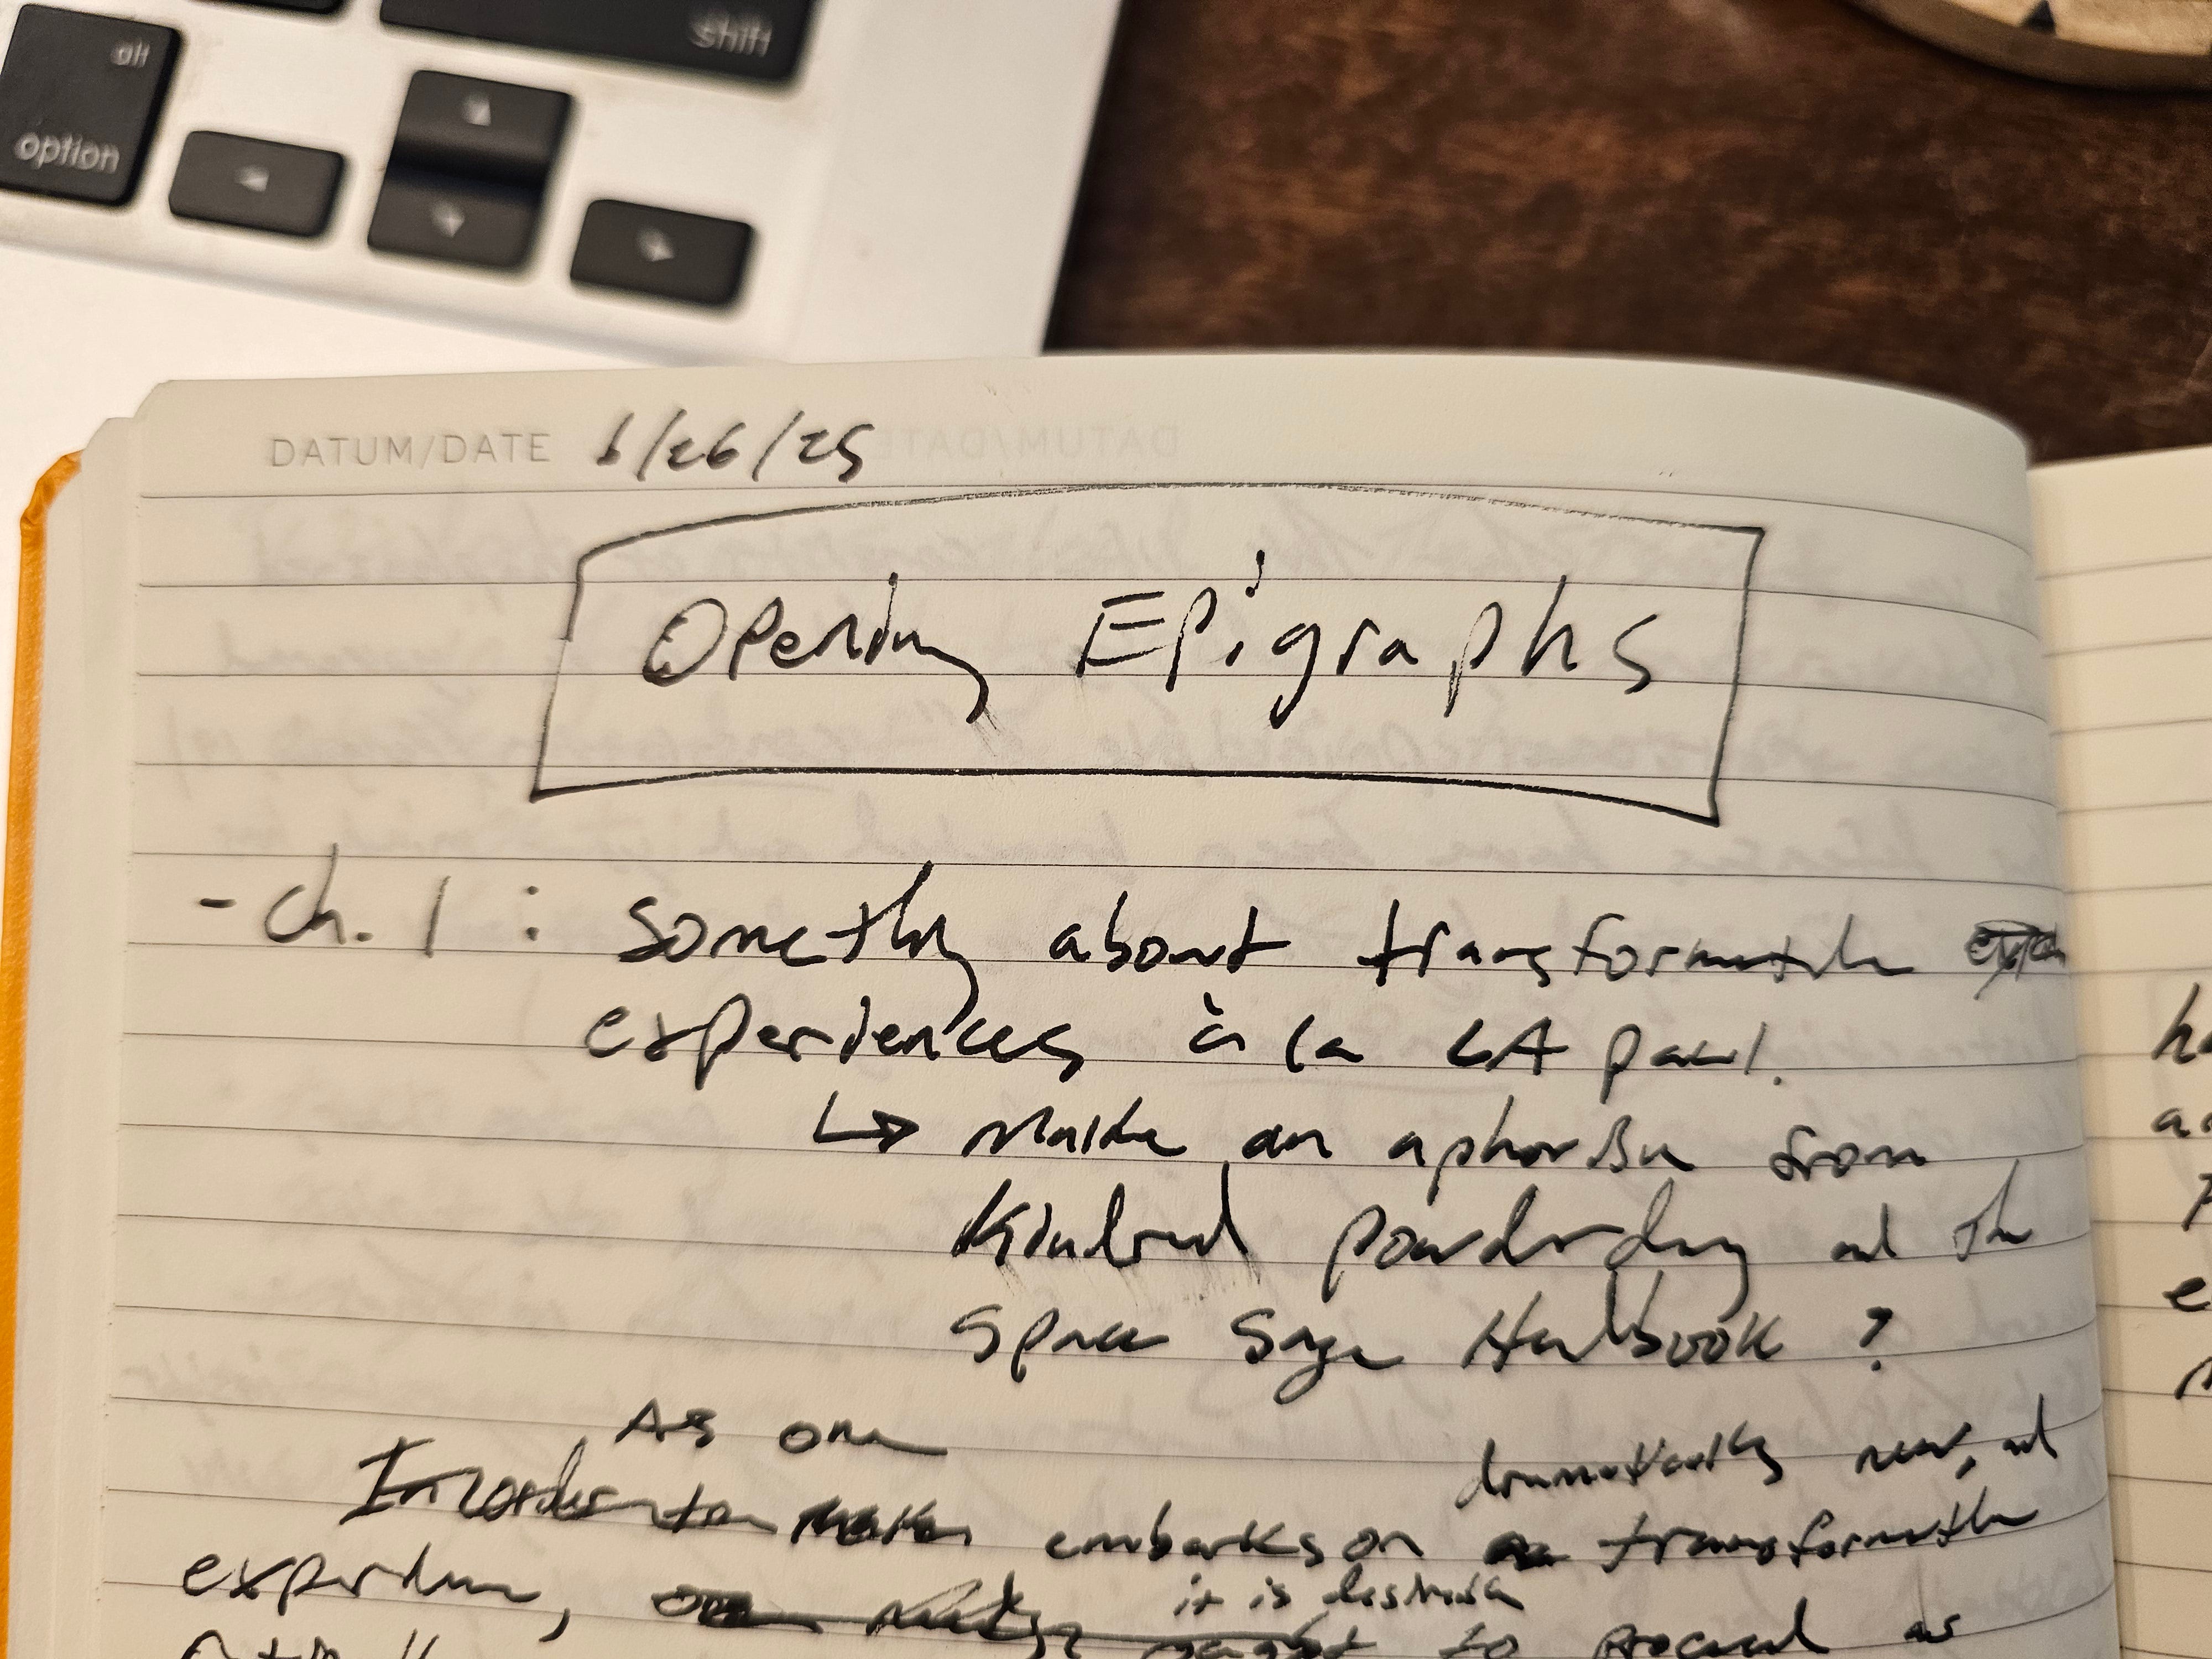 alt
shift
option
DATUM/DATE 6/26/25
Opening Epigraphs
- Ch. 1 : Something about transformative
experiences à la LA Paul.
↳ Make an aphorism from
Kindred powderday and the
Space Sage Handbook ?
As one
dramatically new, and
In order to make embarks on a transformative
experience,
it is desirable
ought to proceed as